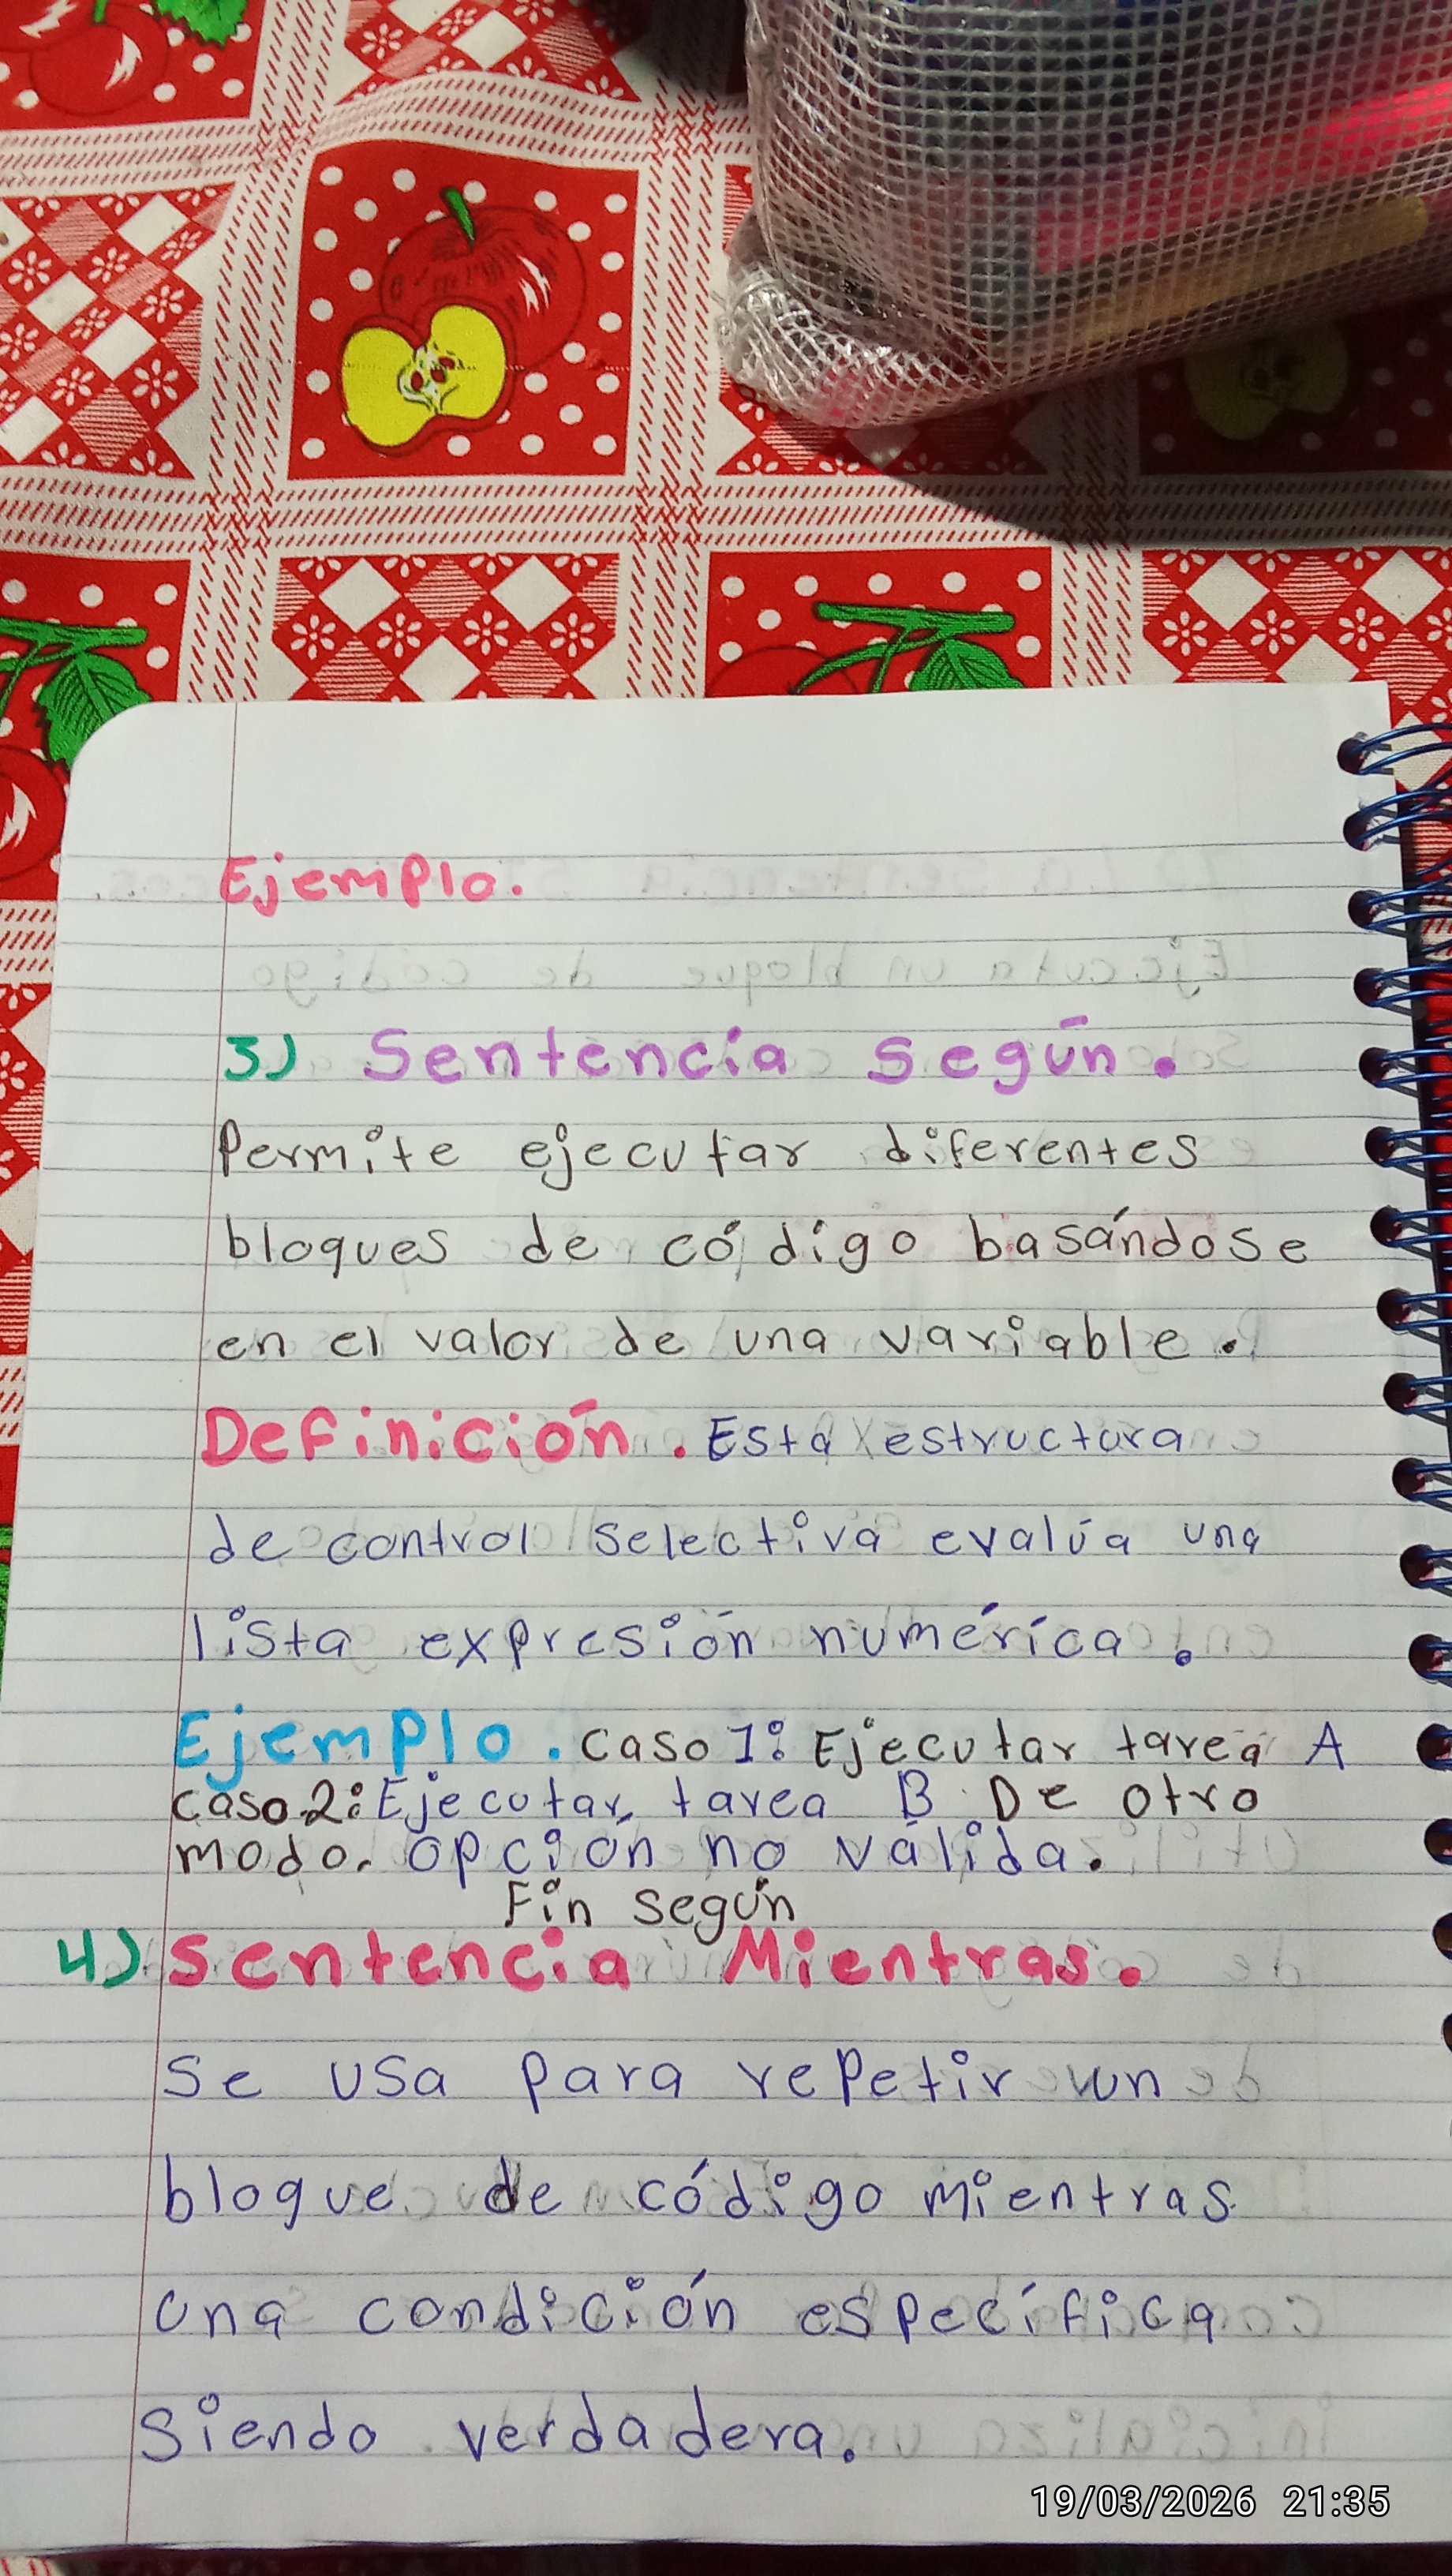 Ejemplo.
3) Sentencia según.
Permite ejecutar diferentes
bloques de código basándose
en el valor de una variable.
Definición. Esta estructura
de control selectiva evalúa una
lista expresión numérica.
Ejemplo. caso 1: Ejecutar tarea A
caso 2: Ejecutar tarea B De otro
modo. opción no válida.
Fin según
4) Sentencia Mientras.
Se usa para repetir un
bloque de código mientras
una condición específica
siendo verdadera.
19/03/2026 21:35